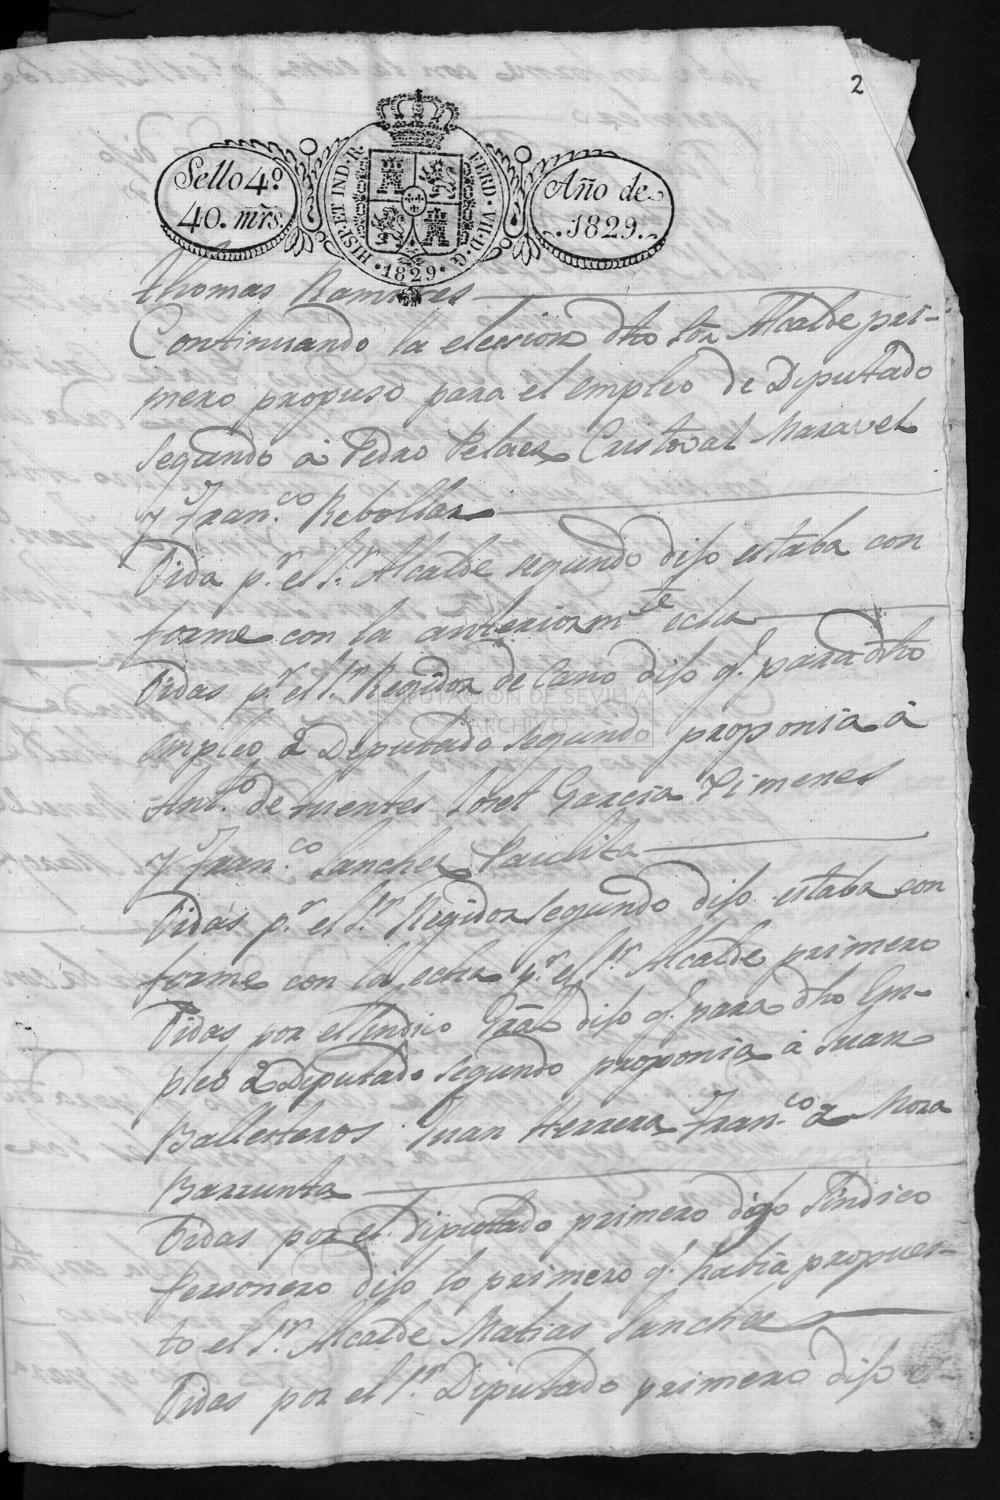 2
Sello 4º
40. mrs.
HISP. ET IND. R.
FERD. VII. D. G.
1829
Año de
1829.
Thomas Ramires
Continuando la elecsion dho Sor Alcalde pri-
mero propuso para el empleo de Diputado
segundo á Pedro Pelaes Cristoval Maravel
y Fran.co Rebollar
Oida p.r el S.r Alcalde segundo dijo estaba con
forme con la anteriorm.te echa
Oidas p.r el S.r Regidor de Cano dijo q.e para dho
empleo de Diputado segundo proponia á
Ant.o de fuentes Josef Garcia Ximenes
y Fran.co Sanches Pauchita
Oidas p.r el S.r Regidor segundo dijo estaba con
forme con la echa p.r el S.r Alcalde primero
Oidas por el Sindico Gral dijo q.e para dho Em-
pleo de Diputado segundo proponia á Juan
Ballesteros Juan Herrera Fran.co de Mora
Barrunta
Oidas por el Diputado primero digo Sindico
Personero dijo lo primero q.e habia propues-
to el S.r Alcalde Matias Sanches
Oidas por el S.r Diputado primero dijo es-
DIPUTACIÓN DE SEVILLA
ARCHIVO